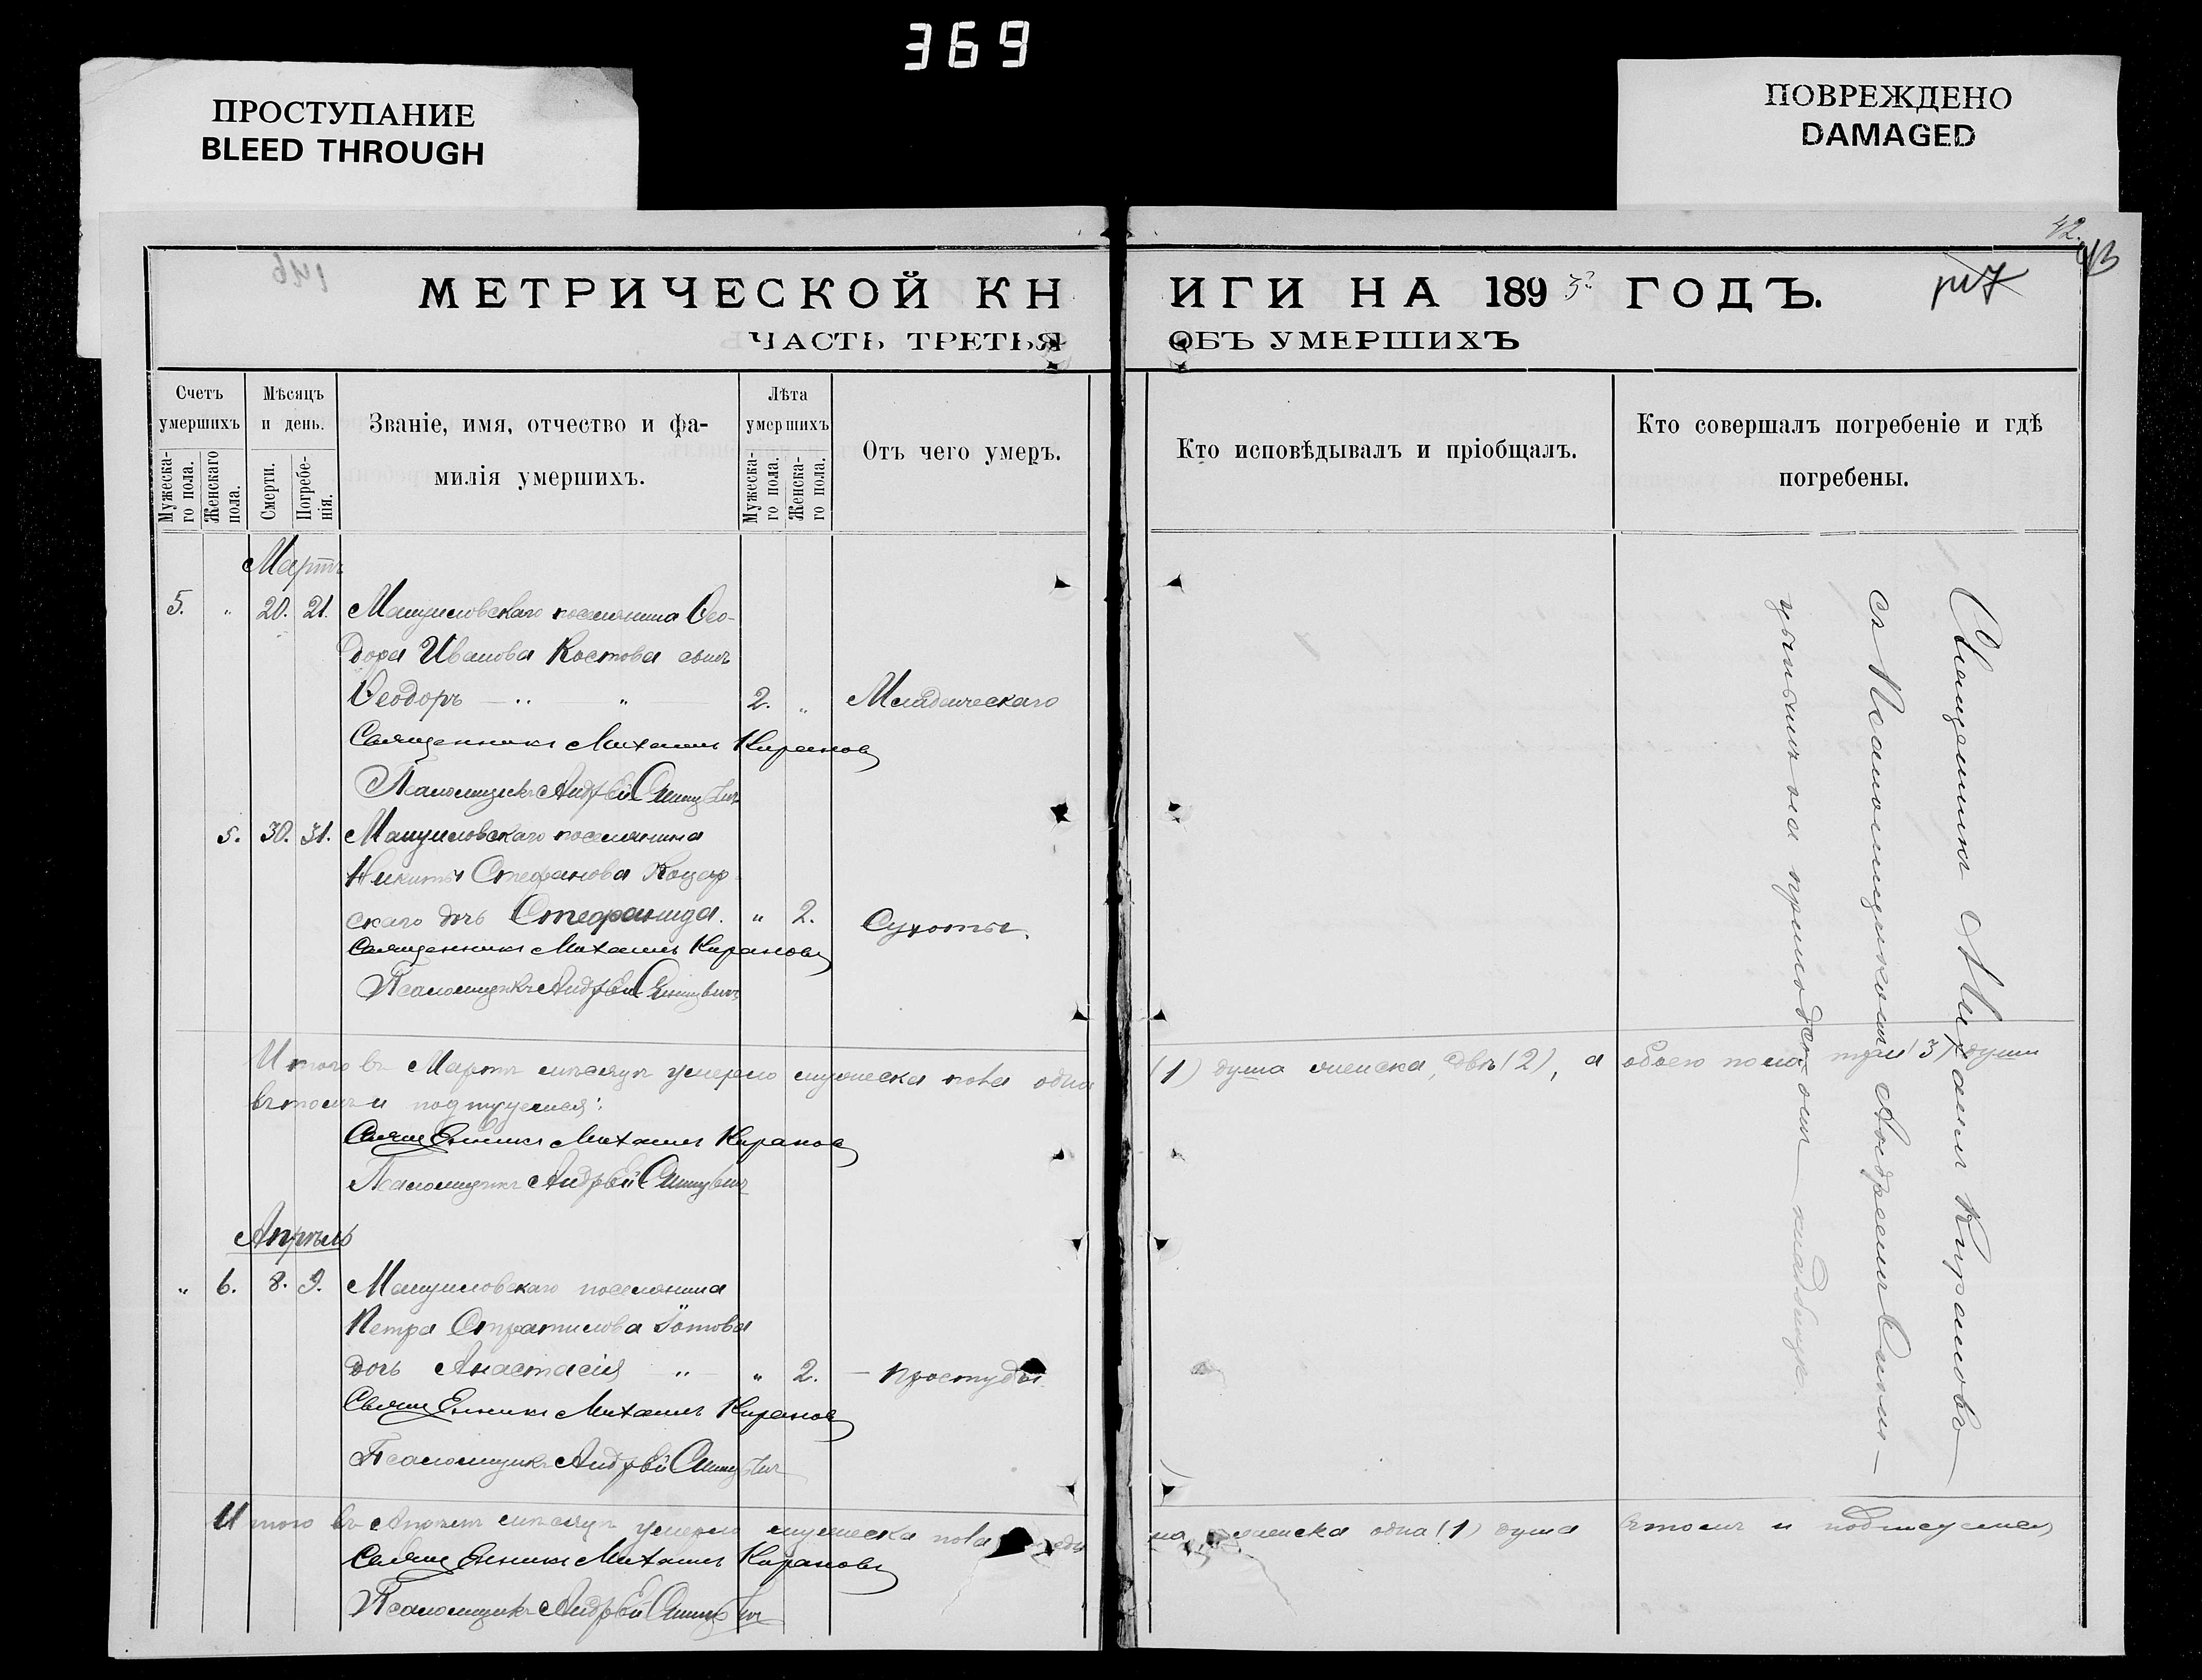 369
ПРОСТУПАНИЕ
BLEED THROUGH
ПОВРЕЖДЕНО
DAMAGED
42.
43
146
МЕТРИЧЕСКОЙ КНИГИ НА 1893 ГОДЪ.
ЧАСТЬ ТРЕТЬЯ ОБЪ УМЕРШИХЪ
Счетъ умершихъ
Мужеска-го пола.
Женскаго пола.
Мѣсяцъ и день.
Смерти.
Погребе-нія.
Званіе, имя, отчество и фа-
милія умершихъ.
Лѣта умершихъ
Мужеска-го пола.
Женска-го пола.
Отъ чего умеръ.
Кто исповѣдывалъ и пріобщалъ.
Кто совершалъ погребеніе и гдѣ
погребены.
Мартъ
5. " 20. 21. Мануиловскаго поселянина Ѳео-
дора Иванова Костова сынъ
Ѳеодоръ — " " 2. " Младенческаго
Священникъ Михаилъ Кирановъ
Псаломщикъ Андрей
5. 30. 31. Мануиловскаго поселянина
Никиты Стефанова Коцар-
скаго дочь Стефанида. " 2. Сухоты.
Священникъ Михаилъ Кирановъ
Псаломщикъ Андрей
Итого въ Мартѣ мѣсяцѣ умерло мужеска пола одна (1) душа женска, двѣ (2), а обоего пола три (3) души
въ томъ и подписуемся:
Священникъ Михаилъ Кирановъ
Псаломщикъ Андрей
Апрѣль
" 6. 8. 9. Мануиловскаго поселянина
Петра Стратилова Іотова
дочь Анастасія " " 2. — Простуды.
Священникъ Михаилъ Кирановъ
Псаломщикъ Андрей
Итого въ Апрѣлѣ мѣсяцѣ умерло мужеска пола женска одна (1) душа въ томъ и подписуемся
Священникъ Михаилъ Кирановъ
Псаломщикъ Андрей
Священникъ Михаилъ Кирановъ
съ Псаломщикомъ Андреемъ
на приходскомъ кладбищѣ.